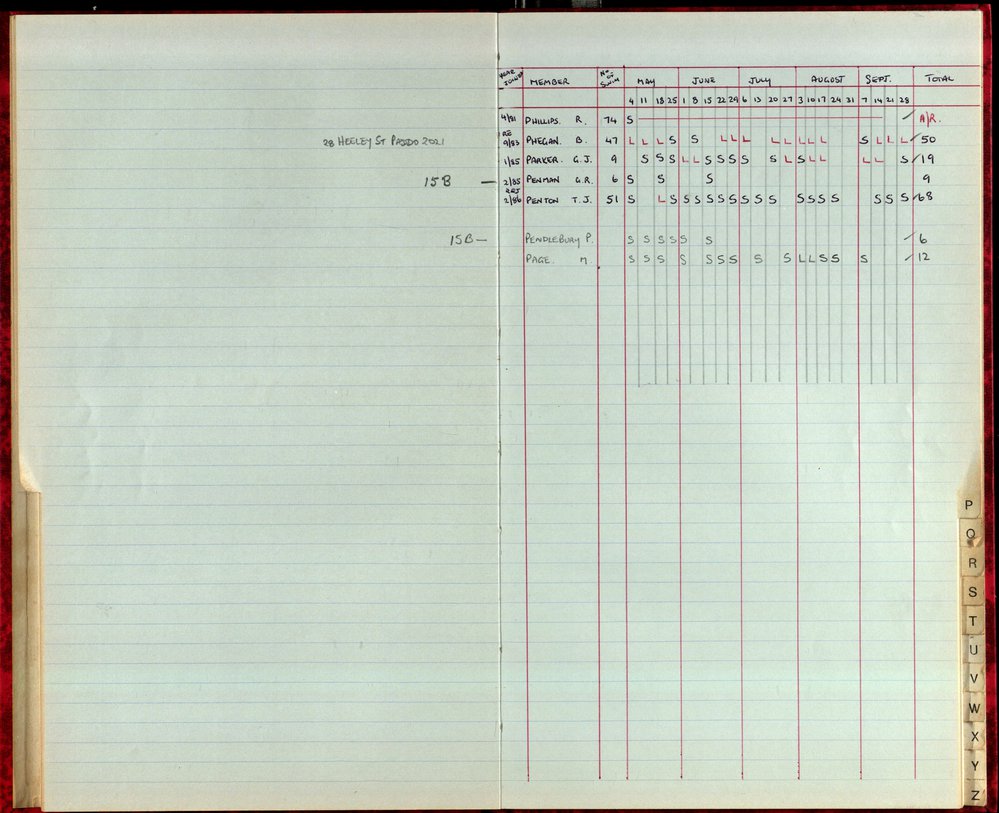 YEAR JOINED MEMBER No OF SWIM MAY JUNE JULY AUGUST SEPT. TOTAL
4 11 18 25 1 8 15 22 29 6 13 20 27 3 10 17 24 31 7 14 21 28
4/81 PHILLIPS. R. 74 S A/R.
28 HEELEY ST PADDO 2021 RE 9/83 PHEGAN. B. 47 L L L S S L L L L L L L L S L L L 50
1/85 PARKER. G.J. 9 S S S L L S S S S S L S L L L L S 19
15B — 2/85 PENMAN G.R. 6 S S S 9
REJ 2/86 PENTON T.J. 51 S L S S S S S S S S S S S S S S S S 68
15B — PENDLEBURY P. S S S S S S 6
PAGE. M. S S S S S S S S S L L S S S 12
P
Q
R
S
T
U
V
W
X
Y
Z